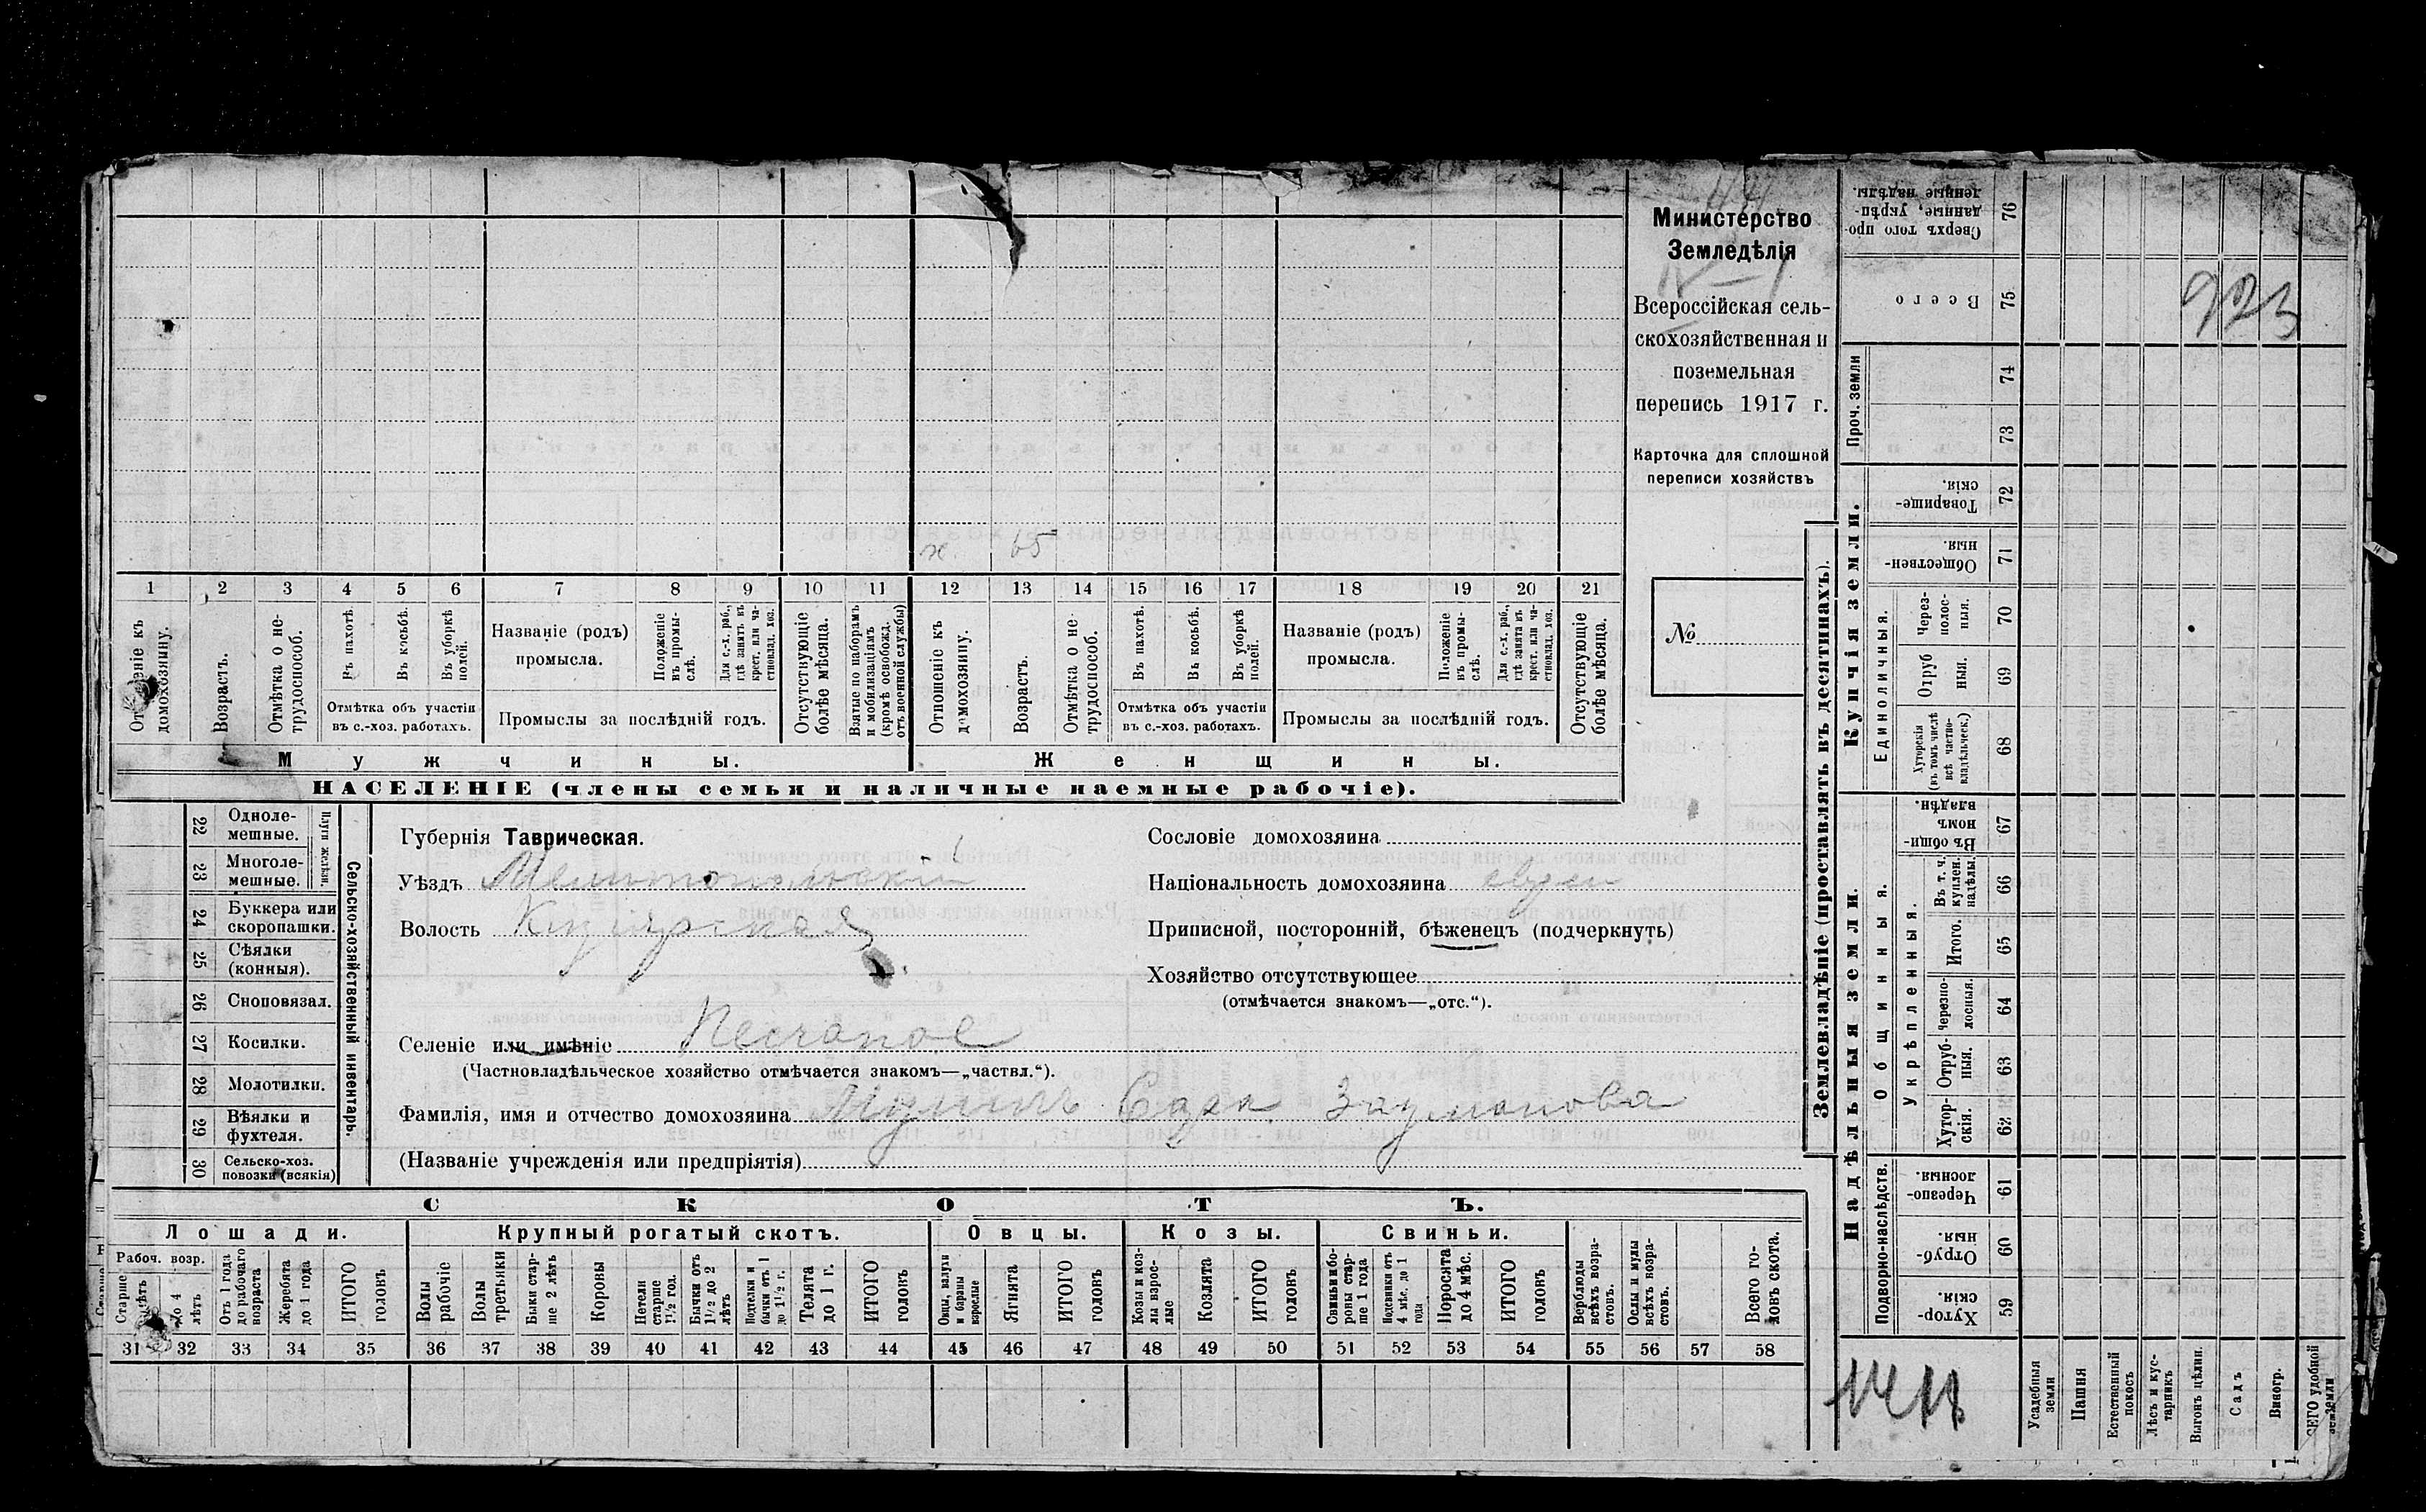 Министерство
Земледѣлія
Всероссійская сель-
скохозяйственная и
поземельная
перепись 1917 г.
Карточка для сплошной
переписи хозяйствъ
№
х 65
1 2 3 4 5 6 7 8 9 10 11 12 13 14 15 16 17 18 19 20 21
Отношеніе къ домохозяину.
Возрастъ.
Отмѣтка о не-трудоспособ.
Въ пахотѣ.
Въ косьбѣ.
Въ уборкѣ полей.
Отмѣтка объ участіи
въ с.-хоз. работахъ.
Названіе (родъ)
промысла.
Положеніе въ промы-слѣ.
Для с.-х. раб., гдѣ занятъ въ крест. или ча-стновлад. хоз.
Промыслы за послѣдній годъ.
Отсутствующіе болѣе мѣсяца.
Взятые по наборамъ и мобилизаціямъ (кромѣ освобожд. отъ военной службы)
Отношеніе къ домохозяину.
Возрастъ.
Отмѣтка о не-трудоспособ.
Въ пахотѣ.
Въ косьбѣ.
Въ уборкѣ полей.
Отмѣтка объ участіи
въ с.-хоз. работахъ.
Названіе (родъ)
промысла.
Положеніе въ промы-слѣ.
Для с.-х. раб., гдѣ занята въ крест. или ча-стновлад. хоз.
Промыслы за послѣдній годъ.
Отсутствующіе болѣе мѣсяца.
Мужчины. Женщины.
НАСЕЛЕНІЕ (члены семьи и наличные наемные рабочіе).
Сельско-хозяйственный инвентарь.
Плуги желѣзн.
22 Одноле-мешные.
23 Многоле-мешные.
24 Буккера или скоропашки.
25 Сѣялки (конныя).
26 Сноповязал.
27 Косилки.
28 Молотилки.
29 Вѣялки и фухтеля.
30 Сельско-хоз. повозки (всякія)
Губернія Таврическая.
Уѣздъ Мелитопольскій
Волость
Селеніе или имѣніе Песчаное
(Частновладѣльческое хозяйство отмѣчается знакомъ—„частвл.“).
Фамилія, имя и отчество домохозяина Сара
(Названіе учрежденія или предпріятія)
Сословіе домохозяина
Національность домохозяина евреи
Приписной, посторонній, бѣженецъ (подчеркнуть)
Хозяйство отсутствующее
(отмѣчается знакомъ—„отс.“).
СКОТЪ.
Лошади. Крупный рогатый скотъ. Овцы. Козы. Свиньи.
Рабоч. возр.
Старше 4 лѣтъ
До 4 лѣтъ
Отъ 1 года до рабочаго возраста
Жеребята до 1 года
ИТОГО головъ
Волы рабочіе
Волы третьяки
Быки стар-ше 2 лѣтъ
Коровы
Нетели старше 1½ год.
Бычки отъ 1½ до 2 лѣтъ
Подтелки и бычки отъ 1 до 1½ г.
Телята до 1 г.
ИТОГО головъ
Овцы, валухи и бараны взрослые
Ягнята
ИТОГО головъ
Козы и коз-лы взрос-лые
Козлята
ИТОГО головъ
Свиньи и бо-ровы стар-ше 1 года
Подсвинки отъ 4 мѣс. до 1 года
Поросята до 4 мѣс.
ИТОГО головъ
Верблюды всѣхъ возра-стовъ.
Ослы и мулы всѣхъ возра-стовъ.
Всего го-ловъ скота.
31 32 33 34 35 36 37 38 39 40 41 42 43 44 45 46 47 48 49 50 51 52 53 54 55 56 57 58
Землевладѣніе (проставлять въ десятинахъ).
Сверхъ того про-данные, укрѣп-ленные надѣлы. 76
Всего 75
923
Проч. земли
74
73
Купчія земли.
Товарище-скія. 72
Обществен-ныя. 71
Единоличныя.
Через-полос-ныя. 70
Отруб ныя. 69
Хуторскія (въ томъ числѣ всѣ частно-владѣльческ.) 68
Надѣльныя земли.
Общинныя.
Въ общи-номъ владѣн. 67
Укрѣпленныя.
Въ т. ч. куплен. надѣлы. 66
Итого. 65
Черезпо-лосныя. 64
Отруб-ныя. 63
Хутор-скія. 62
Подворно-наслѣдств.
Черезпо-лосныя. 61
Отруб-ныя. 60
Хутор-скія. 59
Усадебныя земли
Пашня
Естественный покосъ
Лѣсъ и кус-тарникъ
Выгонъ цѣлин.
Садъ
Виногр.
ВСЕГО удобной земли